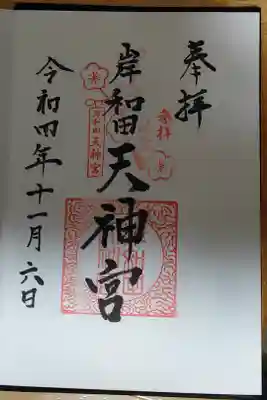 奉拝
岸和田天神宮
令和四年十一月六日
天神宮